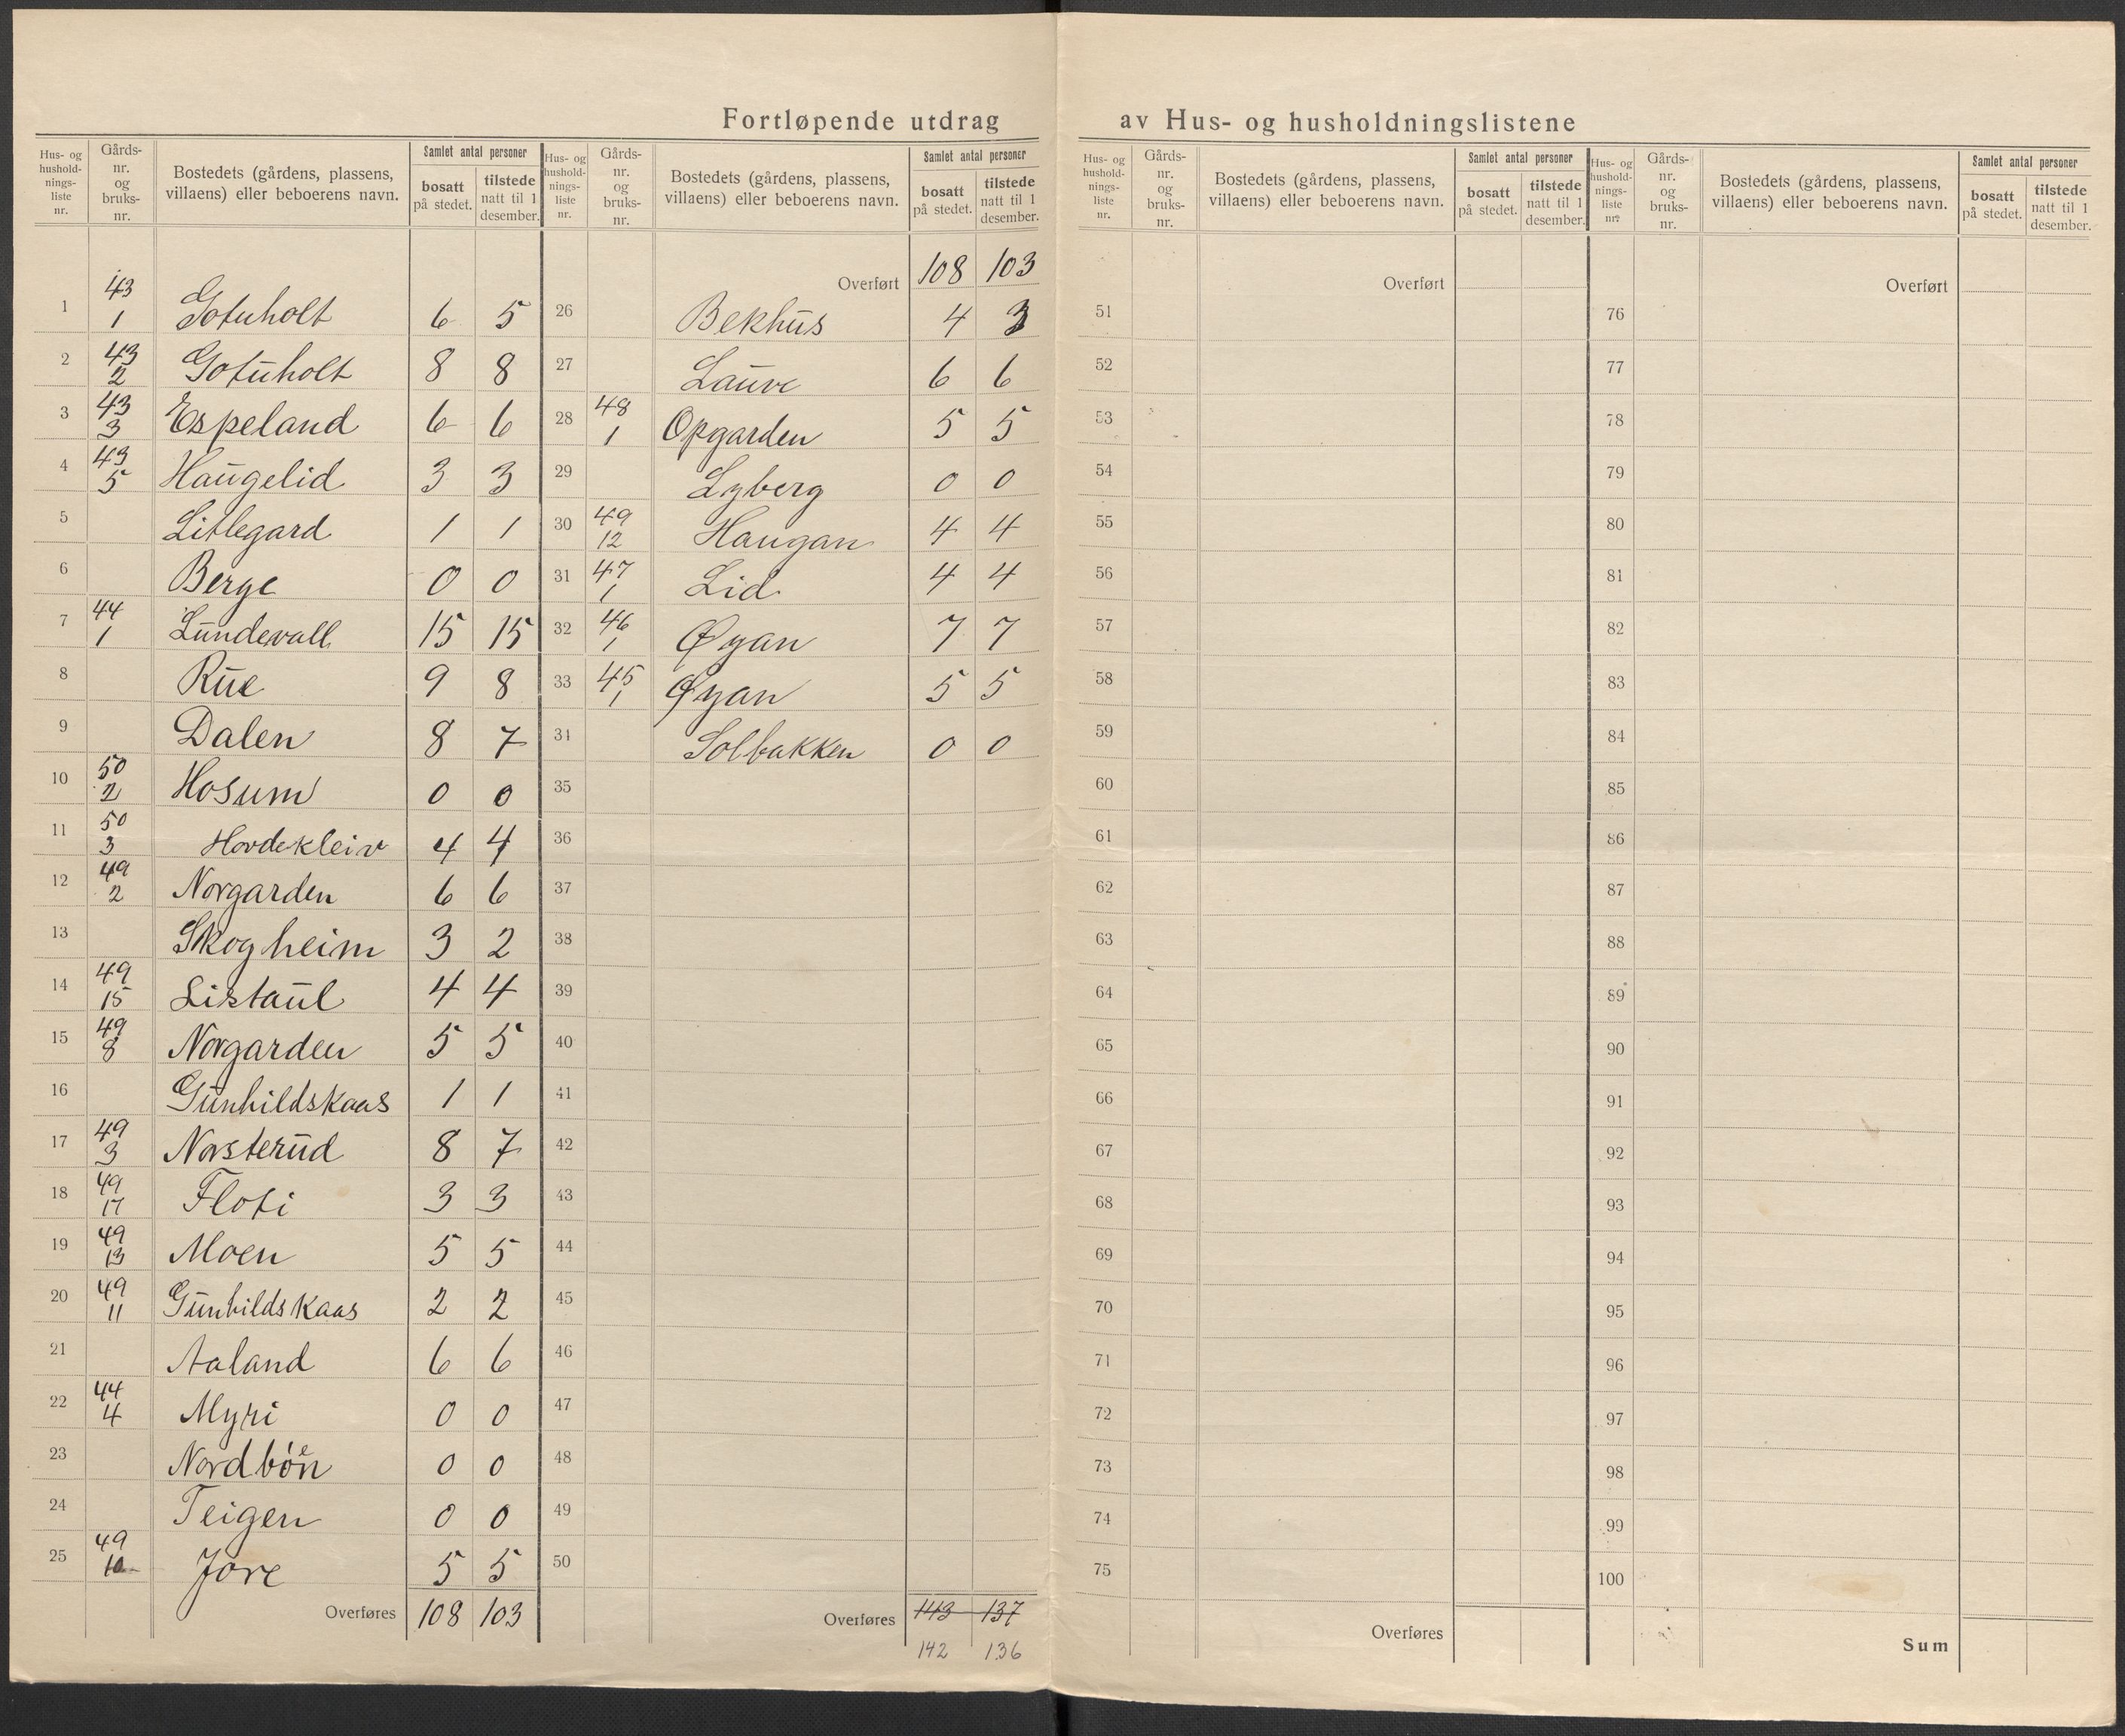 Fortløpende utdrag av Hus- og husholdningslistene
Hus- og hushold-nings-liste nr. Gårds-nr. og bruks-nr. Bostedets (gårdens, plassens, villaens) eller beboerens navn. Samlet antal personer bosatt på stedet. tilstede natt til 1 desember.
1 43 1 Gotuholt 6 5
2 43 2 Gotuholt 8 8
3 43 3 Espeland 6 6
4 43 5 Haugelid 3 3
5 Litlegard 1 1
6 Berge 0 0
7 44 1 Lundevall 15 15
8 Rue 9 8
9 Dalen 8 7
10 50 2 Hosum 0 0
11 50 3 Hovdekleiv 4 4
12 49 2 Norgarden 6 6
13 Skogheim 3 2
14 49 15 Listaul 4 4
15 49 8 Norgarden 5 5
16 Gunhildskaas 1 1
17 49 3 Norsterud 8 7
18 49 17 Floti 3 3
19 49 13 Moen 5 5
20 49 11 Gunhildskaas 2 2
21 Aaland 6 6
22 44 4 Myri 0 0
23 Nordbøen 0 0
24 Teigen 0 0
25 49 10 Jore 5 5
Overføres 108 103
Hus- og hushold-nings-liste nr. Gårds-nr. og bruks-nr. Bostedets (gårdens, plassens, villaens) eller beboerens navn. Samlet antal personer bosatt på stedet. tilstede natt til 1 desember.
Overført 108 103
26 Bekhus 4 3
27 Lauve 6 6
28 48 1 Opgarden 5 5
29 Lyberg 0 0
30 49 12 Haugan 4 4
31 47 1 Lid 4 4
32 46 1 Øyan 7 7
33 45 1 Øyan 5 5
34 Solbakken 0 0
35
36
37
38
39
40
41
42
43
44
45
46
47
48
49
50
Overføres 143 137
142 136
Hus- og hushold-nings-liste nr. Gårds-nr. og bruks-nr. Bostedets (gårdens, plassens, villaens) eller beboerens navn. Samlet antal personer bosatt på stedet. tilstede natt til 1 desember.
Overført
51
52
53
54
55
56
57
58
59
60
61
62
63
64
65
66
67
68
69
70
71
72
73
74
75
Overføres
Hus- og hushold-nings-liste nr. Gårds-nr. og bruks-nr. Bostedets (gårdens, plassens, villaens) eller beboerens navn. Samlet antal personer bosatt på stedet. tilstede natt til 1 desember.
Overført
76
77
78
79
80
81
82
83
84
85
86
87
88
89
90
91
92
93
94
95
96
97
98
99
100
Sum